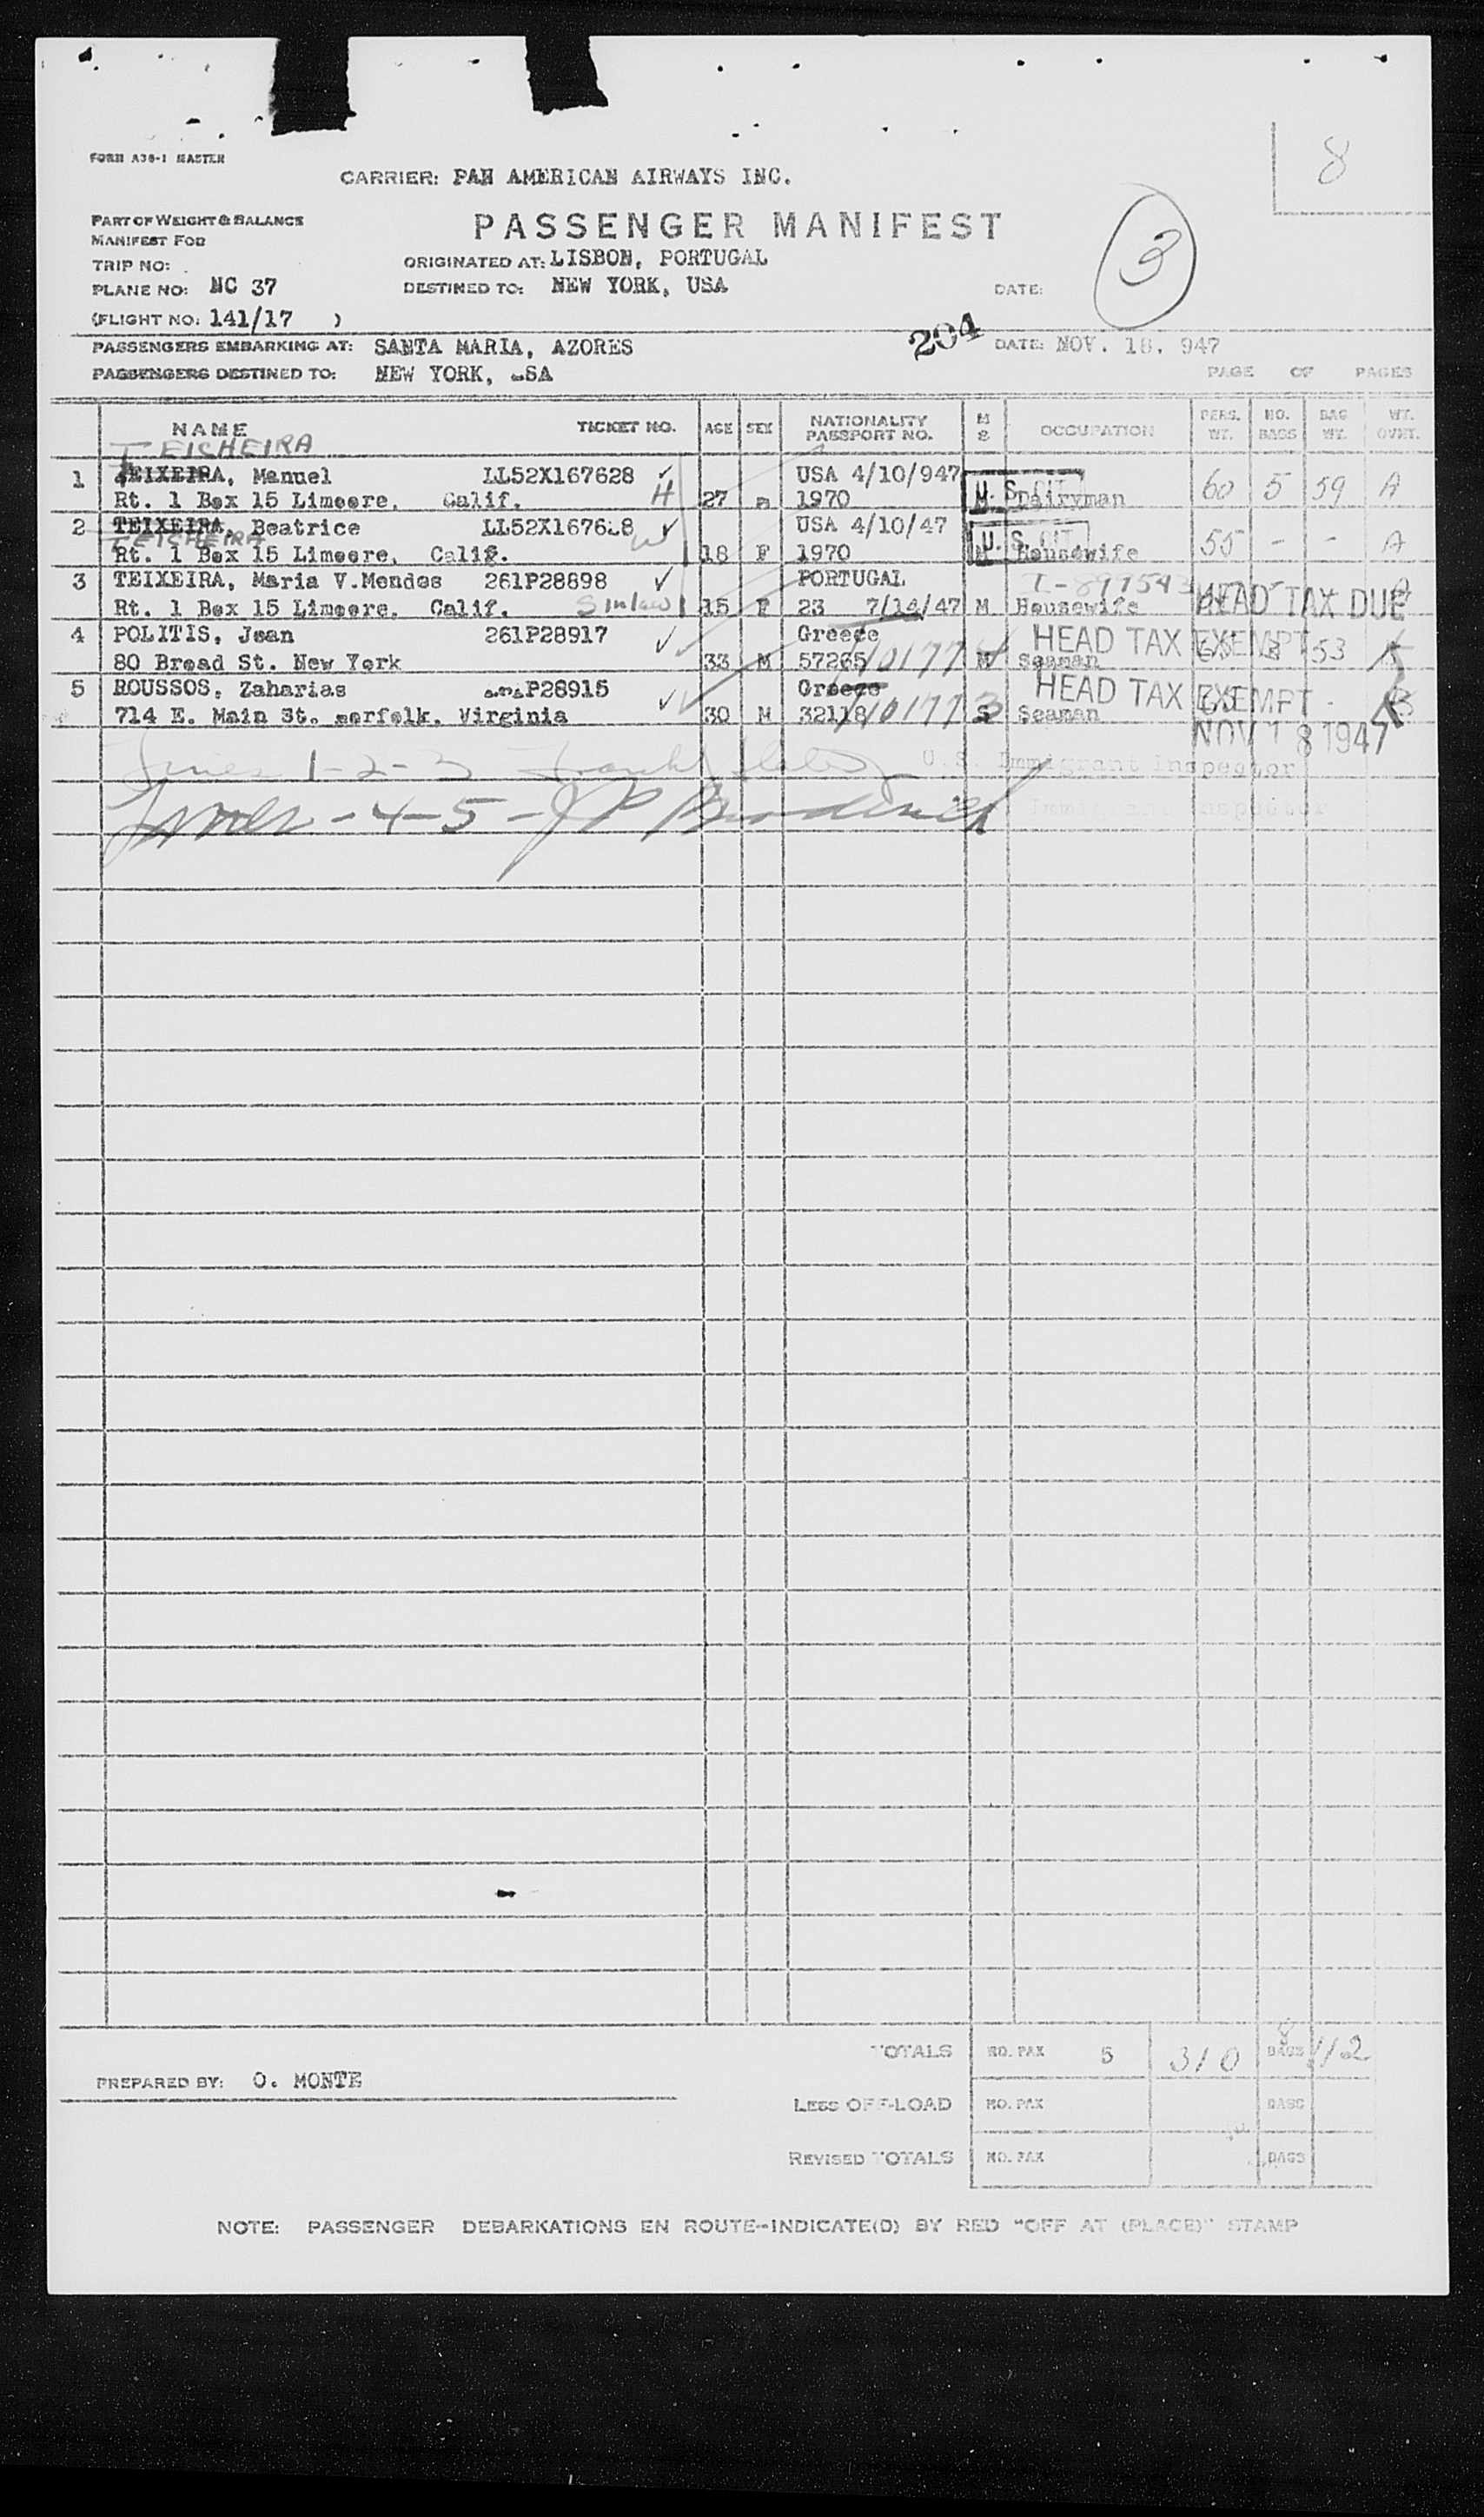 8
FORM A36-1 MASTER
CARRIER: PAN AMERICAN AIRWAYS INC.
PART OF WEIGHT & BALANCE
MANIFEST FOR
PASSENGER MANIFEST
3
TRIP NO:
ORIGINATED AT: LISBON, PORTUGAL
PLANE NO: NC 37
DESTINED TO: NEW YORK, USA
DATE:
(FLIGHT NO: 141/17 )
204
PASSENGERS EMBARKING AT: SANTA MARIA, AZORES
DATE: NOV. 18. 947
PASSENGERS DESTINED TO: NEW YORK, SA
PAGE OF PAGES
NAME TICKET NO. AGE SEX NATIONALITY PASSPORT NO. M S OCCUPATION PERS. WT. NO. BAGS BAG WT. WT. OVRT.
TEISHEIRA
1 TEIXEIRA, Manuel LL52X167628 USA 4/10/947 U. S. CIT 60 5 59 A
Rt. 1 Box 15 Limoore, Calif. H 27 m 1970 M Dairyman
2 TEIXEIRA, Beatrice LL52X1676 8 USA 4/10/47 U. S. CIT 55 - - A
TEISHEIRA
Rt. 1 Box 15 Limoore, Calif. W 18 F 1970 M Housewife
3 TEIXEIRA, Maria V.Mendes 261P28898 PORTUGAL
HEAD TAX DUE
Rt. 1 Box 15 Limoore, Calif. S in law 15 F 23 7/14/47 M Housewife
4 POLITIS, Jean 261P28917 Greece HEAD TAX EXEMPT 53
80 Broad St. New York 33 M 57265 M Seaman
5 ROUSSOS, Zaharias P28915 Greece HEAD TAX EXEMPT
714 E. Main St. orfolk, Virginia 30 M 32118 S Seaman
NOV 18 1947
Lines 1-2-3
U.S. Immigrant Inspector
Lines - 4-5 - J P Broderick
TOTALS NO. PAX 5 310 8 BAGS 112
PREPARED BY: O. MONTE
LESS OFF-LOAD NO. PAX BAGS
REVISED TOTALS NO. PAX BAGS
NOTE: PASSENGER DEBARKATIONS EN ROUTE--INDICATE(D) BY RED "OFF AT (PLACE)" STAMP